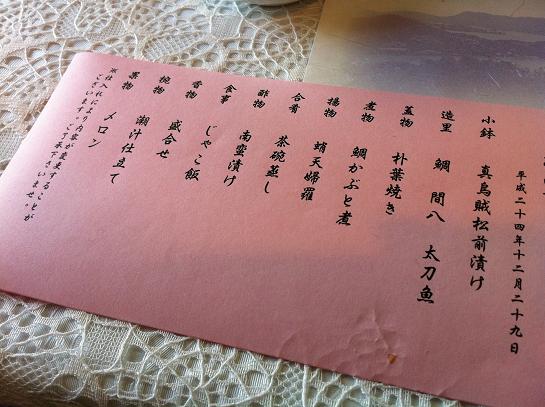 平成二十四年十二月二十九日
小鉢 真烏賊松前漬け
造里 鯛 間八 太刀魚
蓋物 朴葉焼き
煮物 鯛かぶと煮
揚物 蛸天婦羅
合肴 茶碗蒸し
酢物 南蛮漬け
食事 じゃこ飯
香物 盛合せ
椀物 潮汁仕立て
果物 メロン
※仕入れにより内容が変更することが
ございます。ご了承下さいませ。